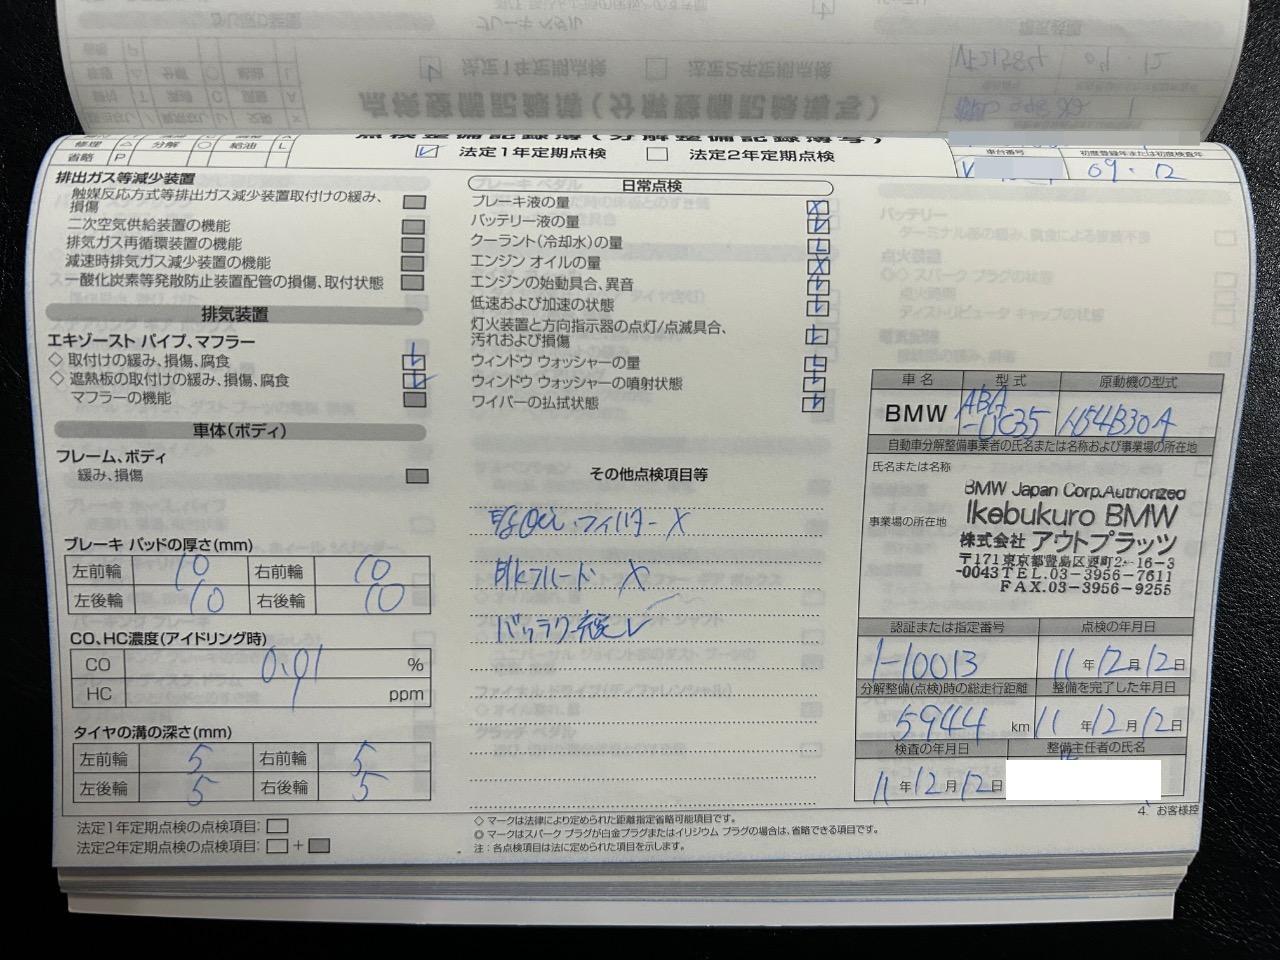 点検整備記録簿(分解整備記録簿写)
修理 △ 分解 ○ 給油 L
省略 P
法定1年定期点検 法定2年定期点検
車台番号 初度登録年または初度検査年
V 09.12
排出ガス等減少装置
触媒反応方式等排出ガス減少装置取付けの緩み、
損傷
二次空気供給装置の機能
排気ガス再循環装置の機能
減速時排気ガス減少装置の機能
一酸化炭素等発散防止装置配管の損傷、取付状態
排気装置
エキゾースト パイプ、マフラー
◇ 取付けの緩み、損傷、腐食
◇ 遮熱板の取付けの緩み、損傷、腐食
マフラーの機能
車体(ボディ)
フレーム、ボディ
緩み、損傷
ブレーキ パッドの厚さ(mm)
左前輪 10 右前輪 10
左後輪 10 右後輪 10
CO、HC濃度(アイドリング時)
CO 0.01 %
HC ppm
タイヤの溝の深さ(mm)
左前輪 5 右前輪 5
左後輪 5 右後輪 5
法定1年定期点検の点検項目:
法定2年定期点検の点検項目: +
日常点検
ブレーキ液の量 X
バッテリー液の量
クーラント(冷却水)の量 L
エンジン オイルの量 X
エンジンの始動具合、異音
低速および加速の状態
灯火装置と方向指示器の点灯/点滅具合、
汚れおよび損傷
ウィンドウ ウォッシャーの量 L
ウィンドウ ウォッシャーの噴射状態
ワイパーの払拭状態
その他点検項目等
フィルター X
フルード X
バッテリー充電
◇ マークは法律により定められた距離指定省略可能項目です。
◎ マークはスパーク プラグが白金プラグまたはイリジウム プラグの場合は、省略できる項目です。
注:各点検項目は法に定められた項目を示します。
車名 型式 原動機の型式
BMW ABA-UC35 N54B30A
自動車分解整備事業者の氏名または名称および事業場の所在地
氏名または名称
事業場の所在地
BMW Japan Corp.Authorized
Ikebukuro BMW
株式会社 アウトプラッツ
〒171 東京都豊島区要町2-16-3
-0043 TEL.03-3956-7611
FAX.03-3956-9255
認証または指定番号 点検の年月日
1-10013 11年12月12日
分解整備(点検)時の総走行距離 整備を完了した年月日
5944 km 11年12月12日
検査の年月日 整備主任者の氏名
11年12月12日
4. お客様控